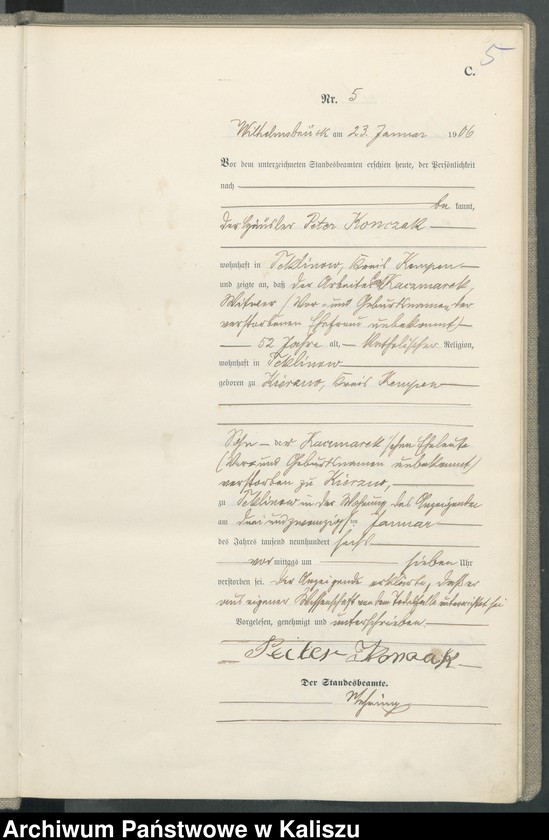 5
C.
Nr. 5
Wilhelmsbrück am 23. Januar 1906
Vor dem unterzeichneten Standesbeamten erschien heute, der Persönlichkeit
nach
be kannt,
der Häusler Peter Konczak
wohnhaft in Teklinow, Kreis Kempen
und zeigte an, daß der Arbeiter Kaczmarek,
Witwer (Vor- und Geburtsnamen der
verstorbenen Ehefrau unbekannt)
52 Jahre alt, katholischer Religion,
wohnhaft in Teklinow
geboren zu Kierzno, Kreis Kempen
Sohn der Kaczmarek'schen Eheleute
(Vor und Geburtsnamen unbekannt)
verstorben zu Kierzno,
zu Teklinow in der Wohnung des Anzeigenden
am drei und zwanzigsten Januar
des Jahres tausend neunhundert sechs
vor mittags um sieben Uhr
verstorben sei. Der Anzeigende erklärte, daß er
aus eigener Wissenschaft von dem Todesfalle unterrichtet sei
Vorgelesen, genehmigt und unterschrieben.
Peiter
Der Standesbeamte.
Archiwum Państwowe w Kaliszu